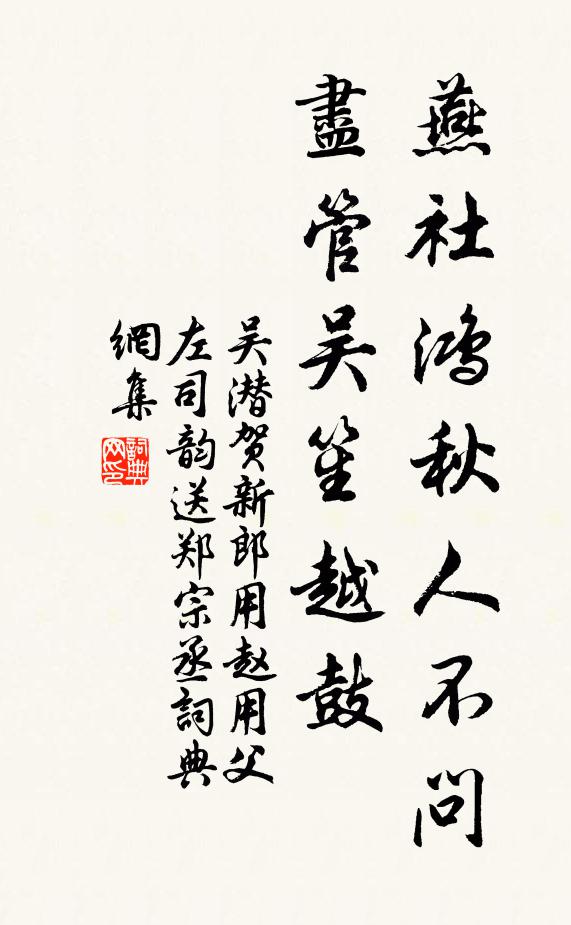 燕社鴻秋人不問
盡管吴笙越鼓
吴潜贺新郎用赵用父
左司韵送郑宗丞詞典
網集
詞典
网印